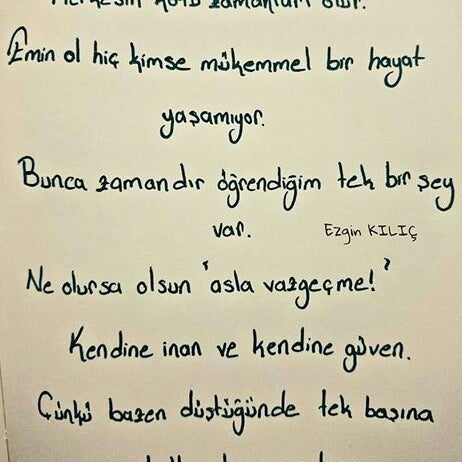 Herkesin kötü zamanları olur.
Emin ol hiç kimse mükemmel bir hayat
yaşamıyor.
Bunca zamandır öğrendiğim tek bir şey
var.
Ezgin KILIÇ
Ne olursa olsun 'asla vazgeçme!'
Kendine inan ve kendine güven.
Çünkü bazen düştüğünde tek başına